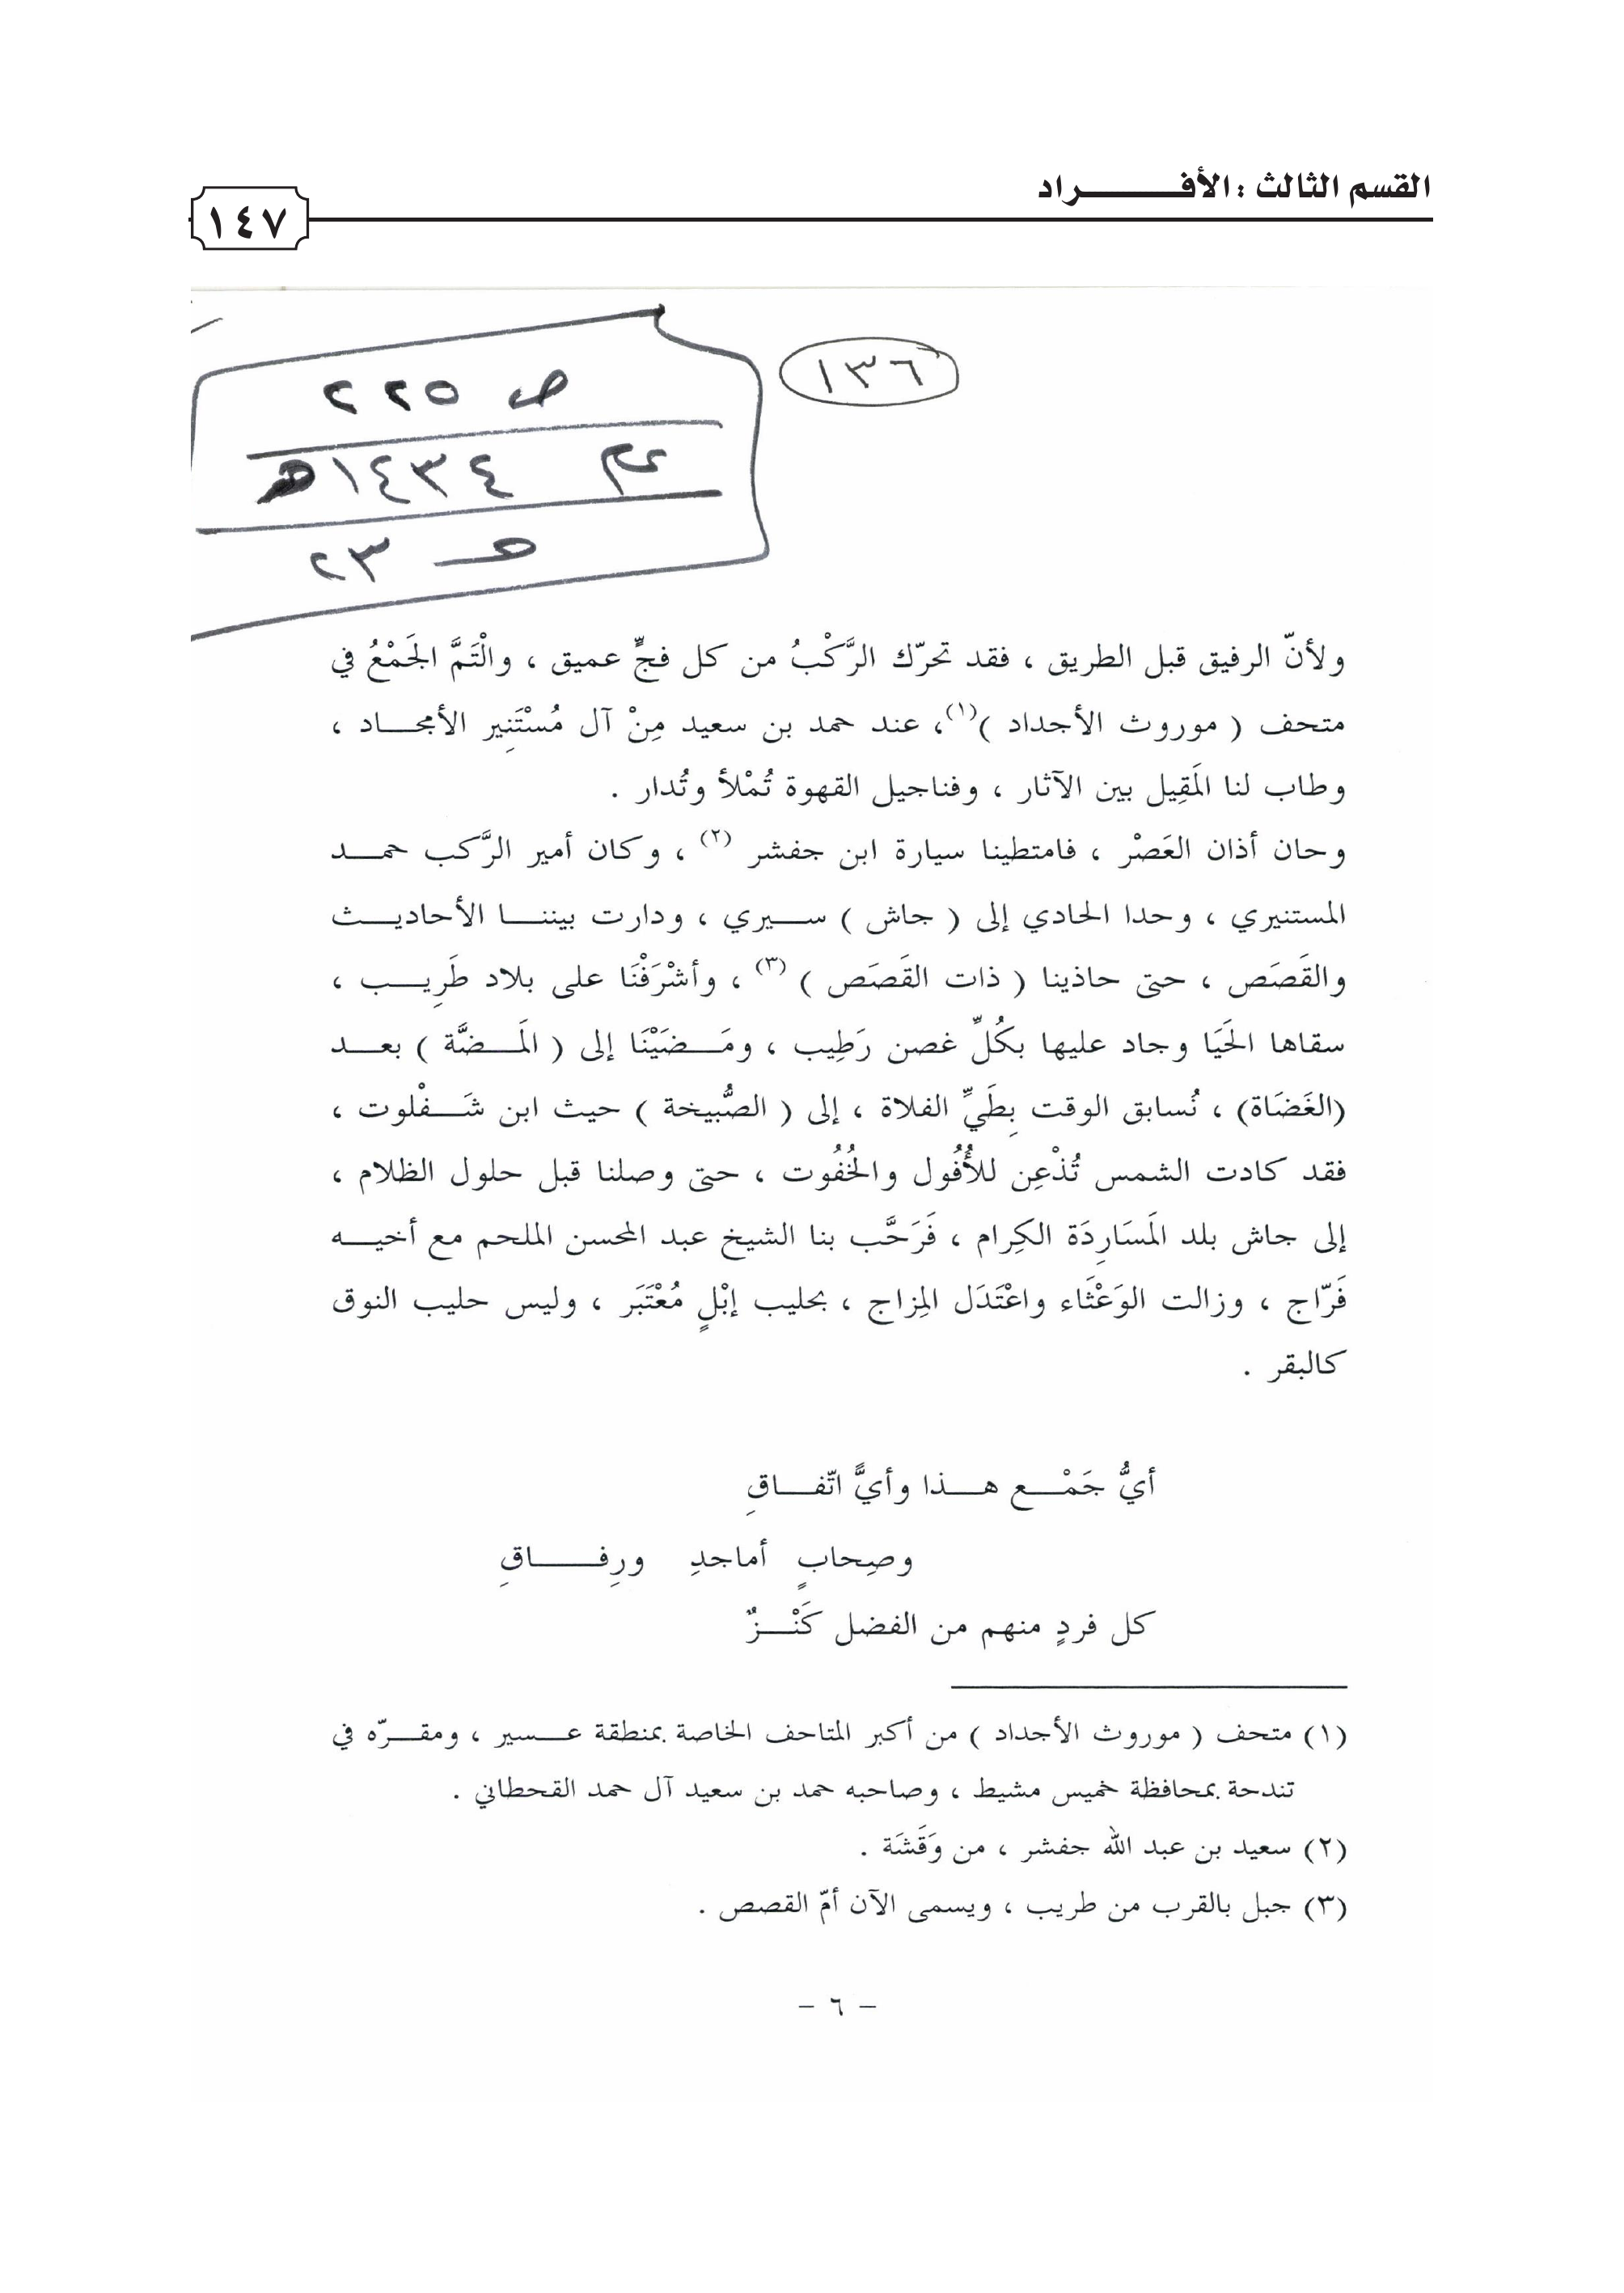 القسم الثالث : الأفـــــــراد
١٤٧
١٣٦
ص ٢٢٥
عام ١٤٣٤هـ
هـ ٢٣
ولأنّ الرفيق قبل الطريق ، فقد تحرّك الرَّكْبُ من كل فجٍّ عميق ، والْتَمَّ الجَمْعُ في
متحف ( موروث الأجداد )(١)، عند حمد بن سعيد مِنْ آل مُسْتَنِير الأمجـــاد ،
وطاب لنا المَقِيل بين الآثار ، وفناجيل القهوة تُمْلأ وتُدار .
وحان أذان العَصْر ، فامتطينا سيارة ابن جفشر (٢) ، وكان أمير الرَّكب حمـــد
المستنيري ، وحدا الحادي إلى ( جاش ) ســيري ، ودارت بيننـــا الأحاديـــث
والقَصَص ، حتى حاذينا ( ذات القَصَص ) (٣) ، وأشْرَفْنَا على بلاد طَرِيـــب ،
سقاها الحَيَا وجاد عليها بكُلِّ غصن رَطِيب ، ومَـــضَيْنَا إلى ( المَـــضَّة ) بعـــد
(الغَضَاة) ، نُسابق الوقت بِطَيِّ الفلاة ، إلى ( الصُّبيخة ) حيث ابن شَـــفْلوت ،
فقد كادت الشمس تُذْعِن للأُفُول والخُفُوت ، حتى وصلنا قبل حلول الظلام ،
إلى جاش بلد المَسَارِدَة الكِرام ، فَرَحَّب بنا الشيخ عبد المحسن الملحم مع أخيـــه
فَرّاج ، وزالت الوَعْثَاء واعْتَدَل المِزاج ، بحليب إبْلٍ مُعْتَبَر ، وليس حليب النوق
كالبقر .
أيُّ جَمْـــع هـــذا وأيُّ اتّفـــاقِ
وصِحابٍ أماجدِ ورِفـــــاقِ
كل فردٍ منهم من الفضل كَنْـــزٌ
(١) متحف ( موروث الأجداد ) من أكبر المتاحف الخاصة بمنطقة عـــسير ، ومقـــرّه في
تندحة بمحافظة خميس مشيط ، وصاحبه حمد بن سعيد آل حمد القحطاني .
(٢) سعيد بن عبد الله جفشر ، من وَقَشَة .
(٣) جبل بالقرب من طريب ، ويسمى الآن أمّ القصص .
– ٦ –